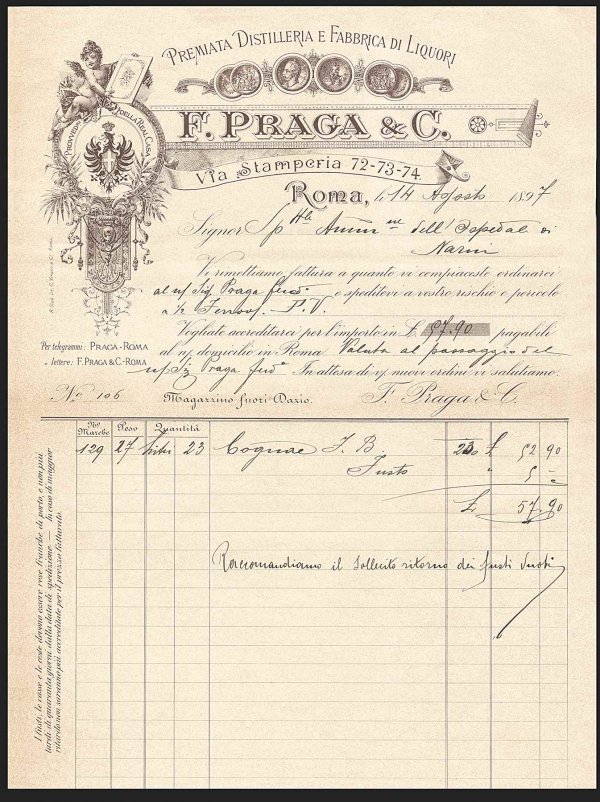 PREMIATA DISTILLERIA E FABBRICA DI LIQUORI
PROVVED. DELLA REAL CASA
F. PRAGA & C.
Via Stamperia 72-73-74.
Roma, li 14 Agosto 1897
Signor Sp Amm dell'Ospedale di
Narni
Vi rimettiamo fattura a quanto vi compiaceste ordinarci
al n/ Sig. Praga e speditovi a vostro rischio e pericolo
a 1/2 Ferrov. P.V.
Vogliate accreditarci per l'importo in £. 57.90 pagabili
al n/. domicilio in Roma. Valuta al passaggio del
n/ Sig Praga In attesa di n/. nuovi ordini vi salutiamo.
Per telegrammi: PRAGA-ROMA
" lettere: F. PRAGA & C.-ROMA
No 106
Magazzino fuori Dazio.
F. Praga & C.
No Marche Peso Quantità
129 27 litri 23 Cognac F. B. 230 £ 52 90
Fusto " 5 –
£ 57.90
Raccomandiamo il sollecito ritorno dei fusti vuoti
I fusti, le casse e le ceste devono essere rese franche di porto, e non più
tardi di quaranta giorni dalla data di spedizione — In caso di maggior
ritardo non saranno più accreditate per il prezzo fatturato.